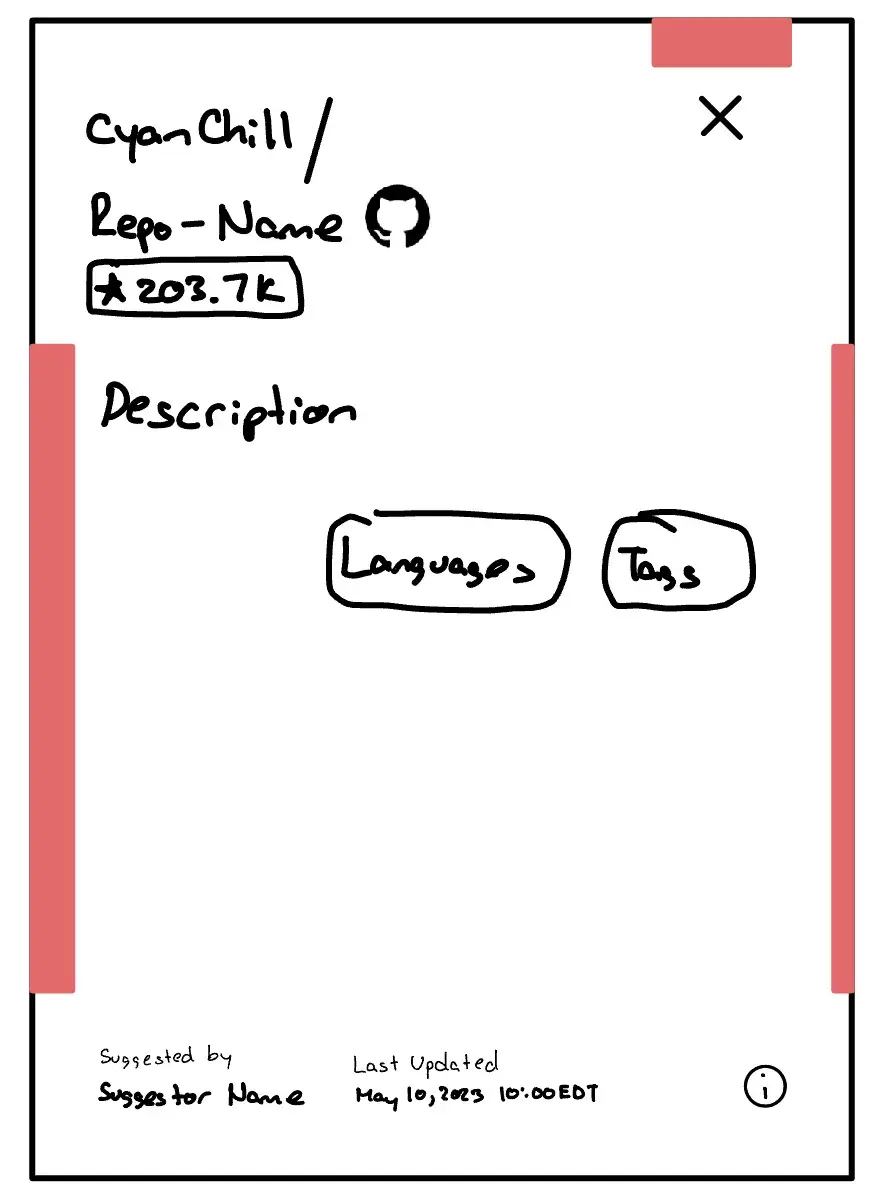 CyanChill/
Repo-Name
★203.7K
Description
Languages
Tags
Suggested by
Suggestor Name
Last Updated
May 10, 2023 10:00 EDT